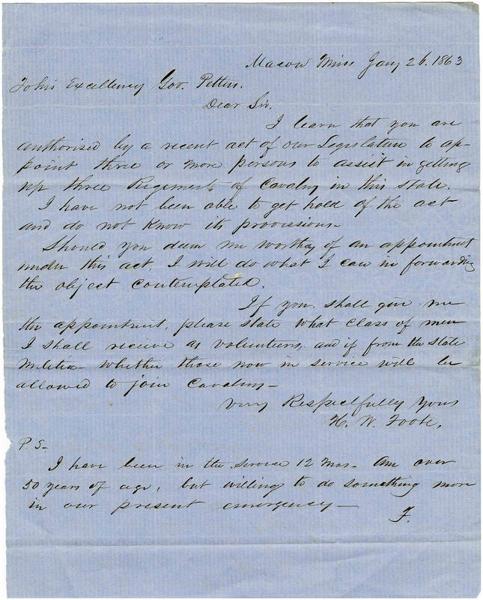 Macon Miss Jany 26. 1863
To his Excellency Gov. Pettus.
Dear Sir.
I learn that you are
authorised by a recent act of our Legislature to ap-
point three or more persons to assist in getting
up three Regiments of Cavalry in this state.
I have not been able to get hold of the act
and do not know its provisions.
Should you deem me worthy of an appointment
under this act, I will do what I can in forwarding
the object contemplated.
If you shall give me
the appointment, please state what class of men
I shall receive as volunteers, and if from the state
Militia whether those now in service will be
allowed to join Cavalry—
Very Respectfully Yours
H. W. Foote.
P S—
I have been in the service 12 mos. Am over
50 years of age, but willing to do something more
in our present emergency—
F.